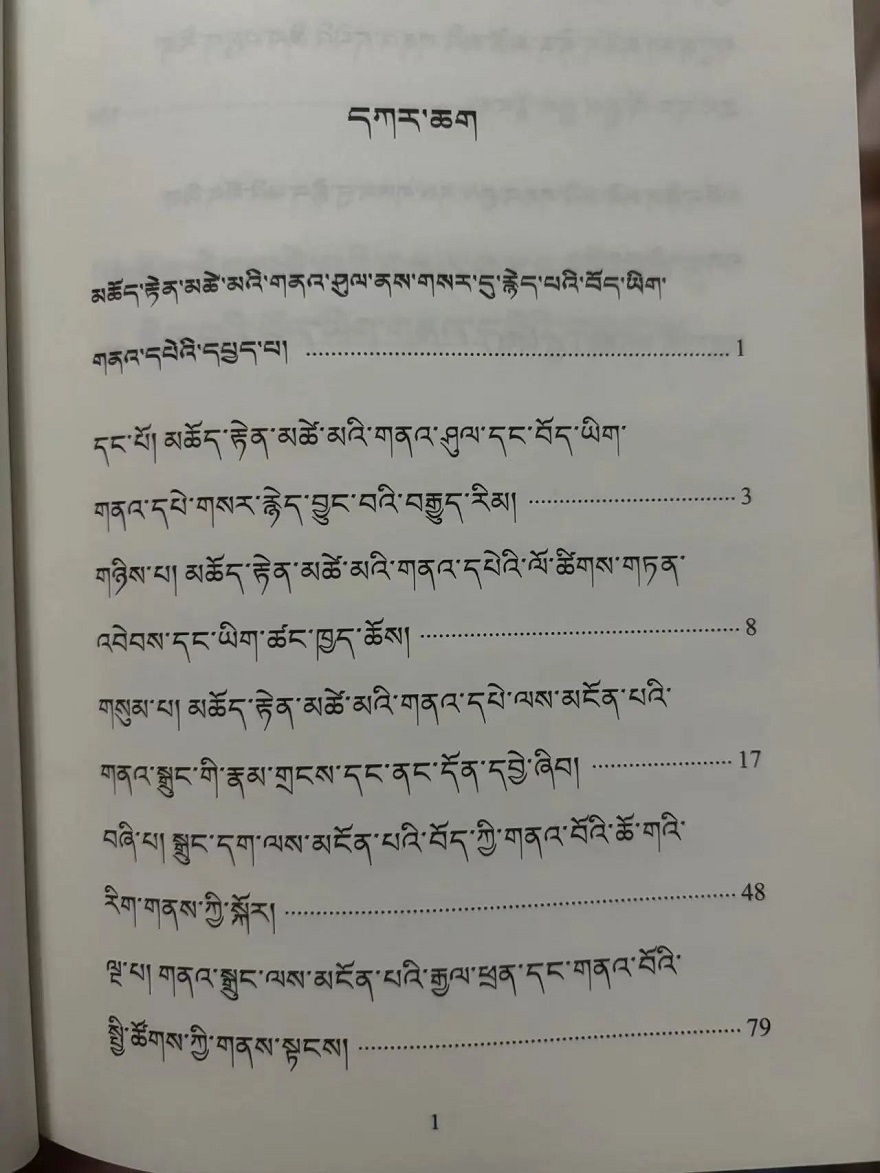 དཀར་ཆག
མཆོད་རྟེན་མཚེ་མའི་གནའ་ཤུལ་ནས་གསར་དུ་རྙེད་པའི་བོད་ཡིག་
གནའ་དཔེའི་དཔྱད་པ། ........................................................ 1
དང་པོ། མཆོད་རྟེན་མཚེ་མའི་གནའ་ཤུལ་དང་བོད་ཡིག་
གནའ་དཔེ་གསར་རྙེད་བྱུང་བའི་བརྒྱུད་རིམ། ........................... 3
གཉིས་པ། མཆོད་རྟེན་མཚེ་མའི་གནའ་དཔེའི་ལོ་ཚིགས་གཏན་
འབེབས་དང་ཡིག་ཚང་ཁྱད་ཆོས། .......................................... 8
གསུམ་པ། མཆོད་རྟེན་མཚེ་མའི་གནའ་དཔེ་ལས་མངོན་པའི་
གནའ་སྒྲུང་གི་རྣམ་གྲངས་དང་ནང་དོན་དབྱེ་ཞིབ། .................. 17
བཞི་པ། སྒྲུང་དག་ལས་མངོན་པའི་བོད་ཀྱི་གནའ་བོའི་ཆོ་གའི་
རིག་གནས་ཀྱི་སྐོར། ............................................................ 48
ལྔ་པ། གནའ་སྒྲུང་ལས་མངོན་པའི་རྒྱལ་ཕྲན་དང་གནའ་བོའི་
སྤྱི་ཚོགས་ཀྱི་གནས་སྟངས། .................................................. 79
1